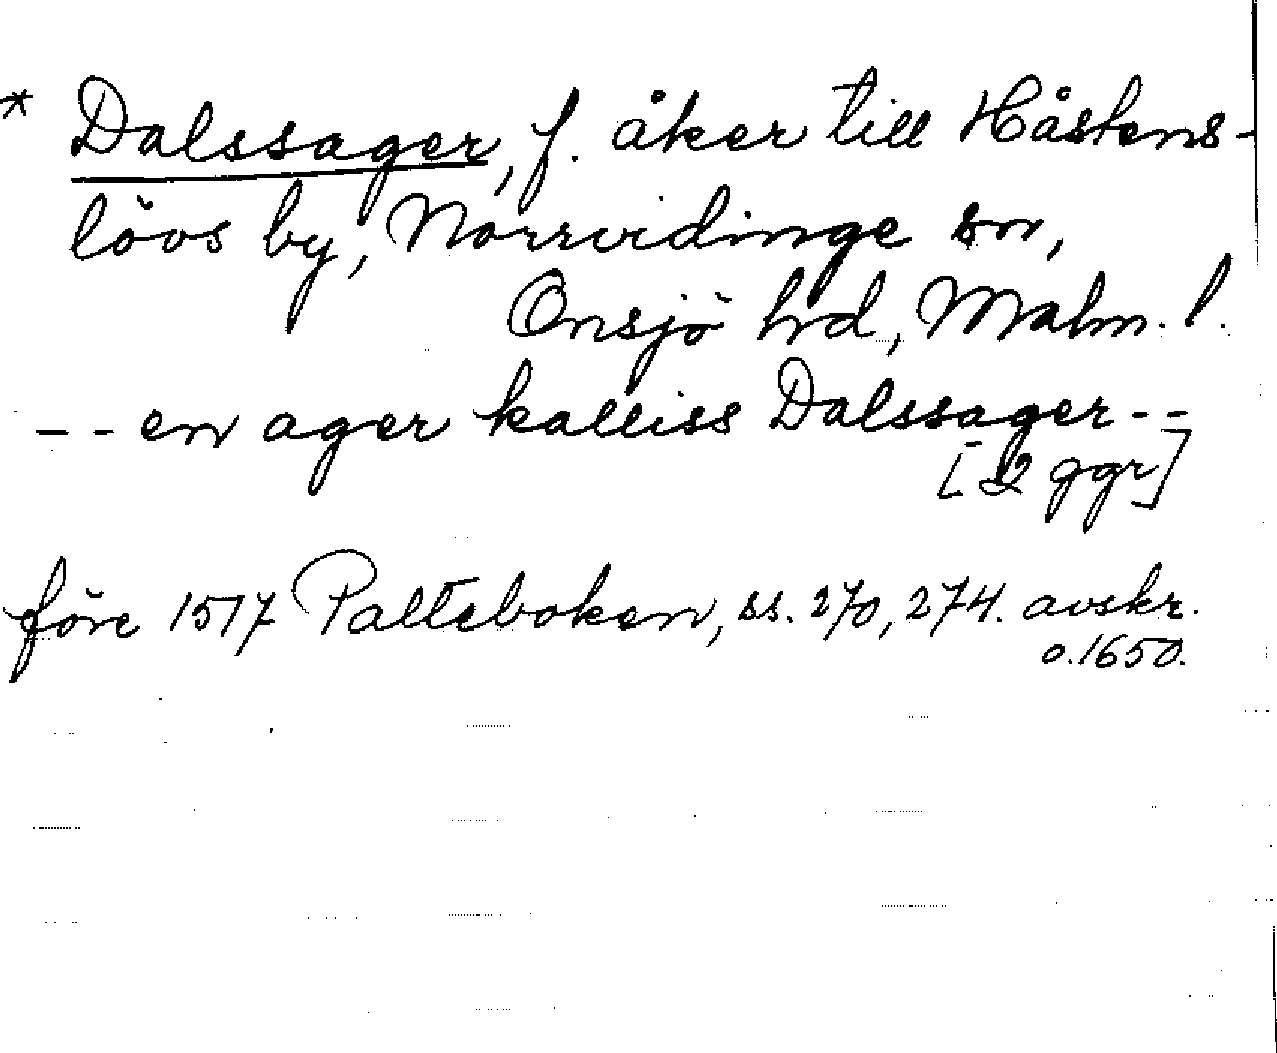 * Dalssager, f. åker till Håstens-
lövs by, Norrvidinge sn,
Onsjö hrd, Malm. l.
-- en ager kalliss Dalssager --
[2 ggr]
före 1517 Palteboken, ss. 270, 274. avskr.
o. 1650.